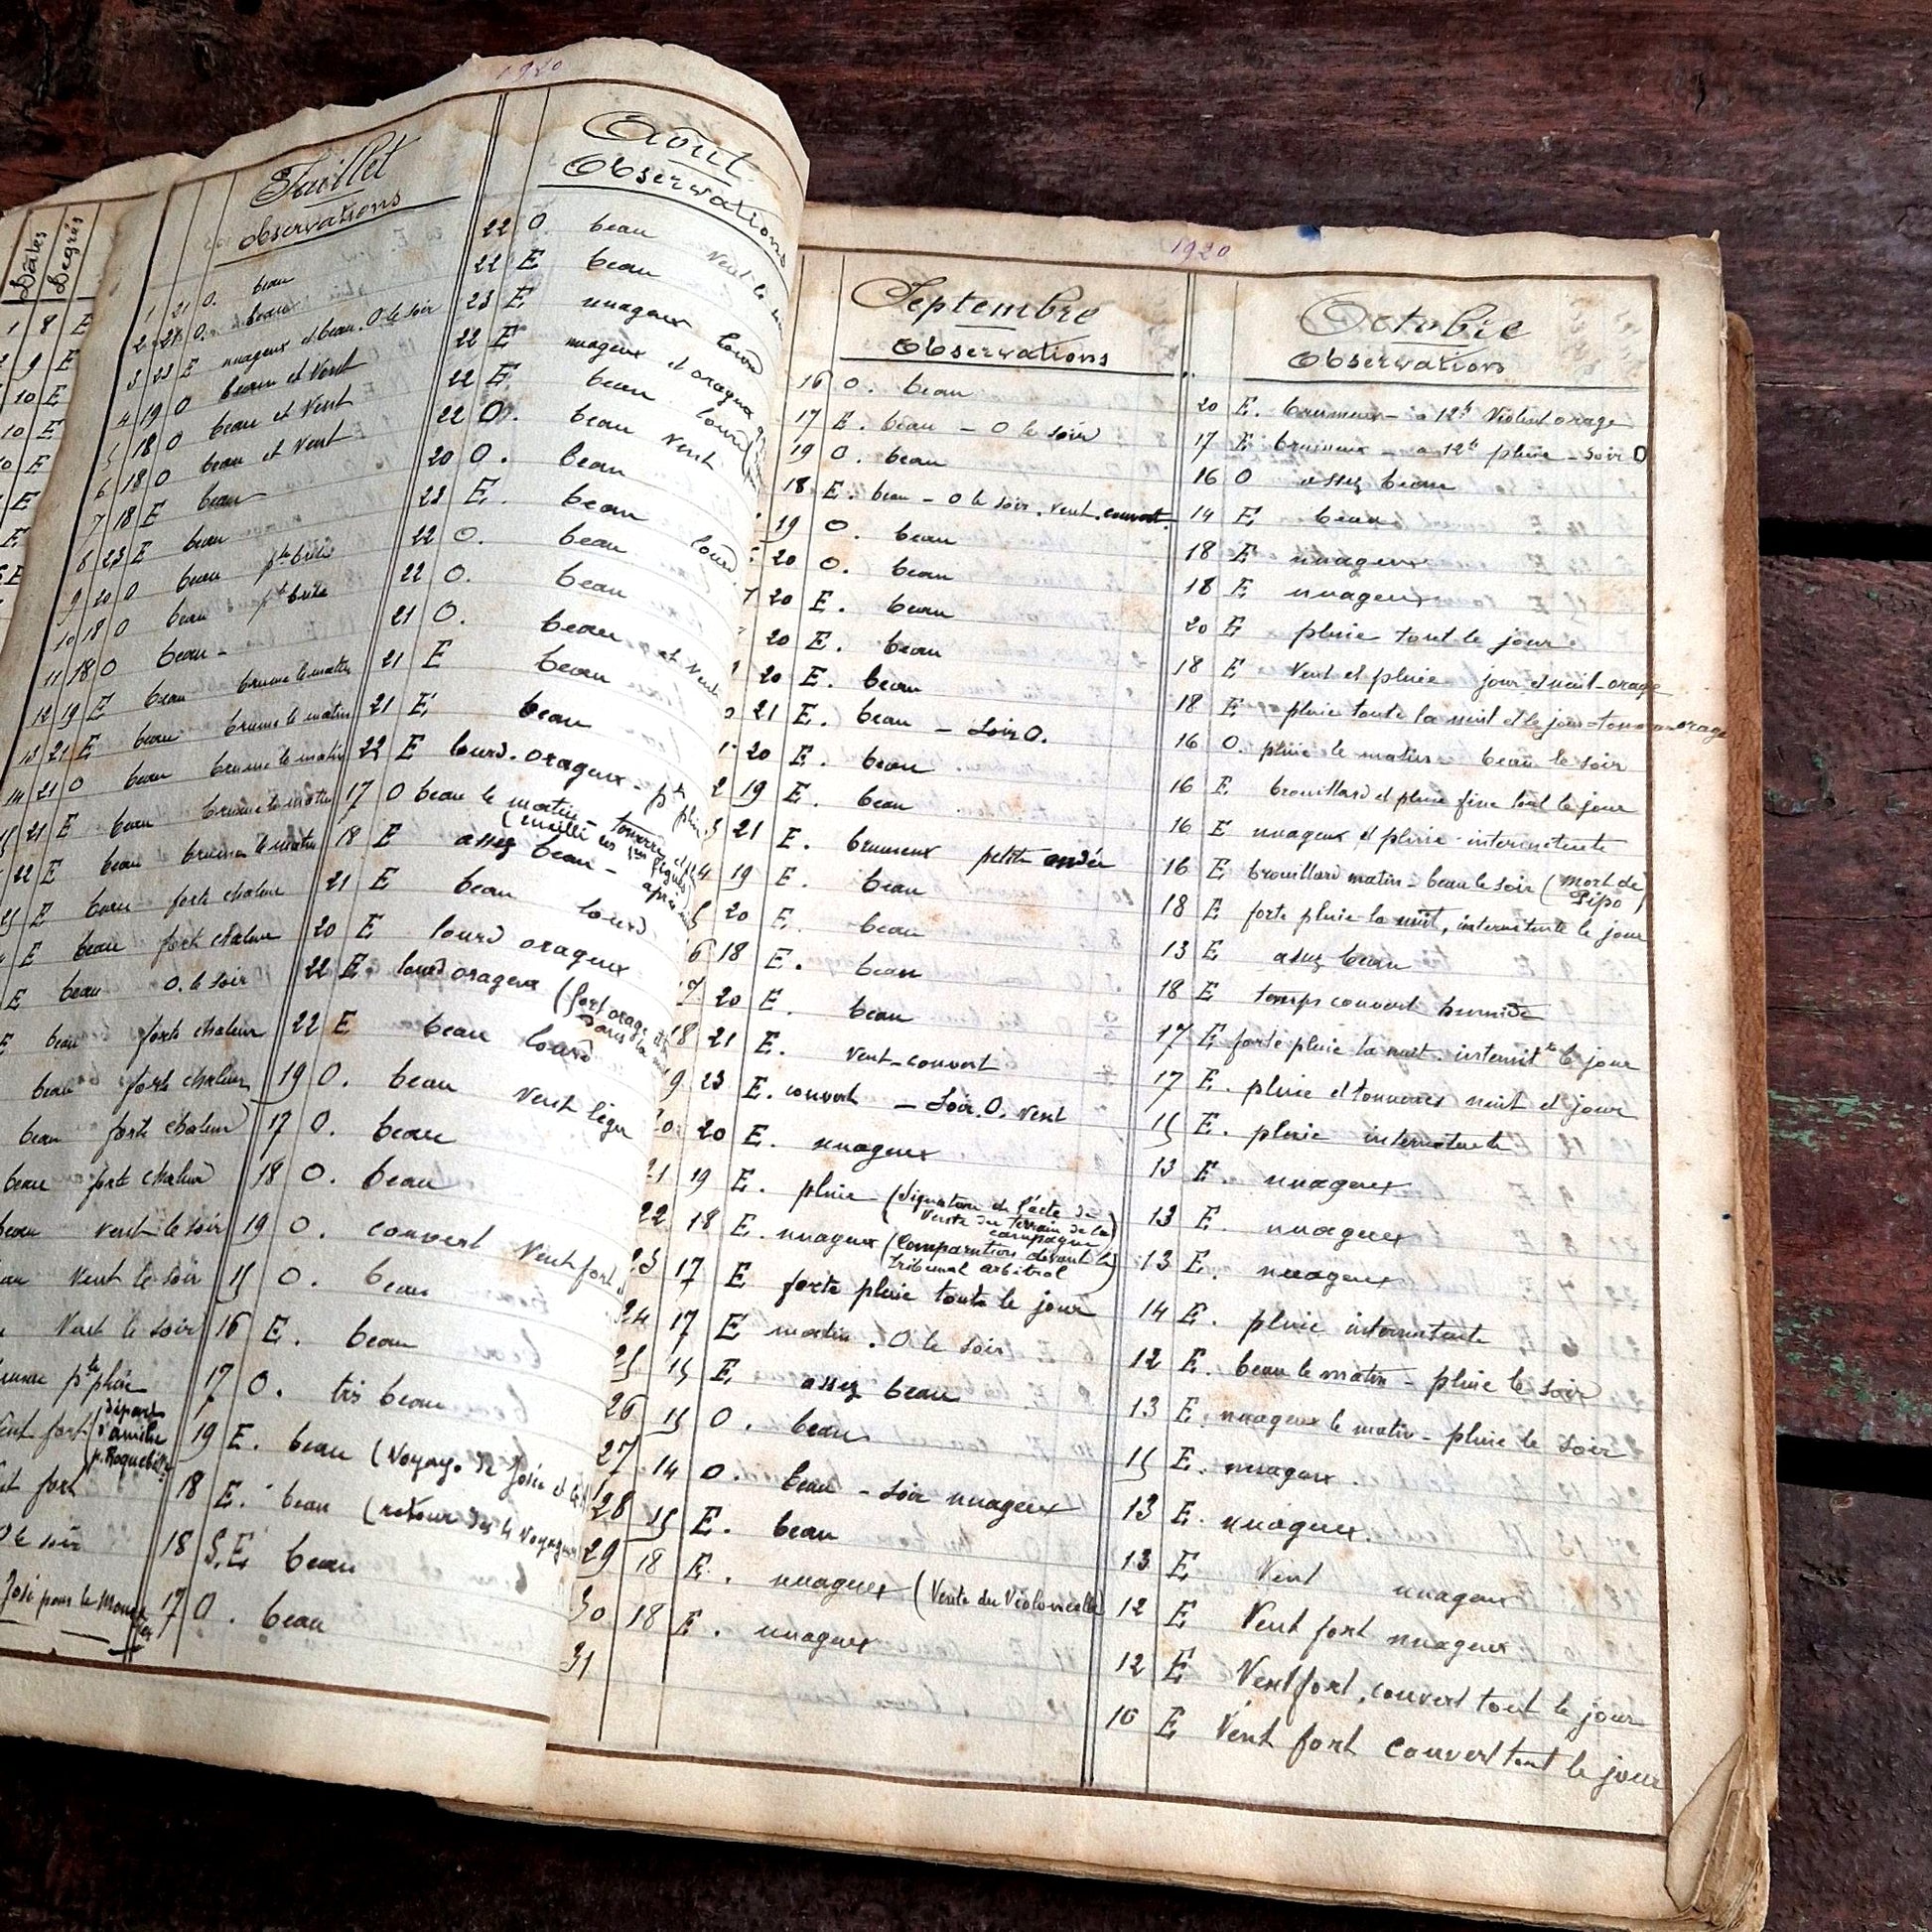 Dates
Degrés
1 8 E
9 E
10 E
10 E
E
E
E
1920
Juillet
Observations
1 21 O. beau
2 21 O. beau
3 23 E nuageux et beau. O le soir
4 19 O beau et Vent
5 18 O beau et Vent
6 18 O beau et Vent
7 18 E beau
8 23 E beau
9 20 O beau pte brise
10 18 O beau pte brise
11 18 O beau -
12 19 E beau brume le matin
13 21 E beau brume le matin
14 21 O beau brume le matin
15 21 E beau brume le matin
22 E beau brume le matin
E beau forte chaleur
E beau forte chaleur
E beau O. le soir
E beau forte chaleur
beau forte chaleur
beau forte chaleur
beau forte chaleur
beau vent le soir
Vent le soir
Vent le soir
pte pluie
Vent fort (départ
fort
O le soir
José pour le
Août
Observations
22 O. beau Vent le
22 E beau
23 E nuageux lourd
22 E nuageux et orageux
22 E beau lourd
22 O. beau Vent
20 O. beau
23 E. beau lourd
22 O. beau
22 O. beau
21 O. beau et Vent
21 E beau
21 E beau
22 E lourd. orageux - pte pluie
17 O beau le matin - tonnerre et
18 E assez beau - après
(cueilli les 1res figues)
21 E beau lourd
20 E lourd orageux
22 E. lourd orageux (fort orage
dans la
22 E beau lourd
19 O. beau Vent léger
17 O. beau
18 O. beau
19 O. couvert Vent fort
15 O. beau
16 E. beau
17 O. très beau
19 E. beau (Voyage de José et
18 E. beau (retour des 4 voyageurs
18 S.E beau
17 O. beau
1920
Septembre
Observations
16 O. beau
17 E. beau - O le soir
19 O. beau
18 E. beau - O le soir. Vent. couvert.
19 O. beau
20 O. beau
7 20 E. beau
20 E. beau
20 E. beau
21 E. beau - Soir O.
20 E. beau
2 19 E. beau
3 21 E. brumeux petite ondée
4 19 E. beau
5 20 E. beau
6 18 E. beau
7 20 E. beau
18 21 E. Vent - couvert
9 23 E. couvert - Soir. O. Vent
20 20 E. nuageux
21 19 E. pluie (Signature de l'acte de
Vente du terrain de la
campagne)
22 18 E. nuageux (Comparution devant le
tribunal arbitral)
23 17 E forte pluie toute le jour
24 17 E matin. O le soir
25 15 E assez beau
26 15 O. beau
27 14 O. beau - soir nuageux
28 15 E. beau
29 18 E. nuageux (Vente du Violoncelle)
30 18 E. nuageux
31
Octobre
Observations
20 E. brumeux - à 12h Violent orage
17 E brumeux - à 12h pluie - soir O
16 O assez beau
14 E beau
18 E nuageux
18 E nuageux
20 E pluie tout le jour
18 E Vent et pluie jour et nuit - orage
18 E pluie toute la nuit et le jour - tonnerre orage
16 O. pluie le matin beau le soir
16 E brouillard et pluie fine tout le jour
16 E nuageux et pluie intermittente
16 E brouillard matin - beau le soir (mort de
Pipo)
18 E forte pluie la nuit, intermittente le jour
13 E assez beau
18 E temps couvert humide
17 E forte pluie la nuit. intermitte le jour
17 E. pluie et tonnerres nuit et jour
15 E. pluie intermittente
13 E. nuageux
13 E. nuageux
13 E. nuageux
14 E. pluie intermittente
12 E. beau le matin - pluie le soir
13 E. nuageux le matin - pluie le soir
15 E. nuageux.
13 E. nuageux.
13 E Vent nuageux
12 E Vent fort nuageux
12 E Vent fort, couvert tout le jour
10 E Vent fort couvert tout le jour